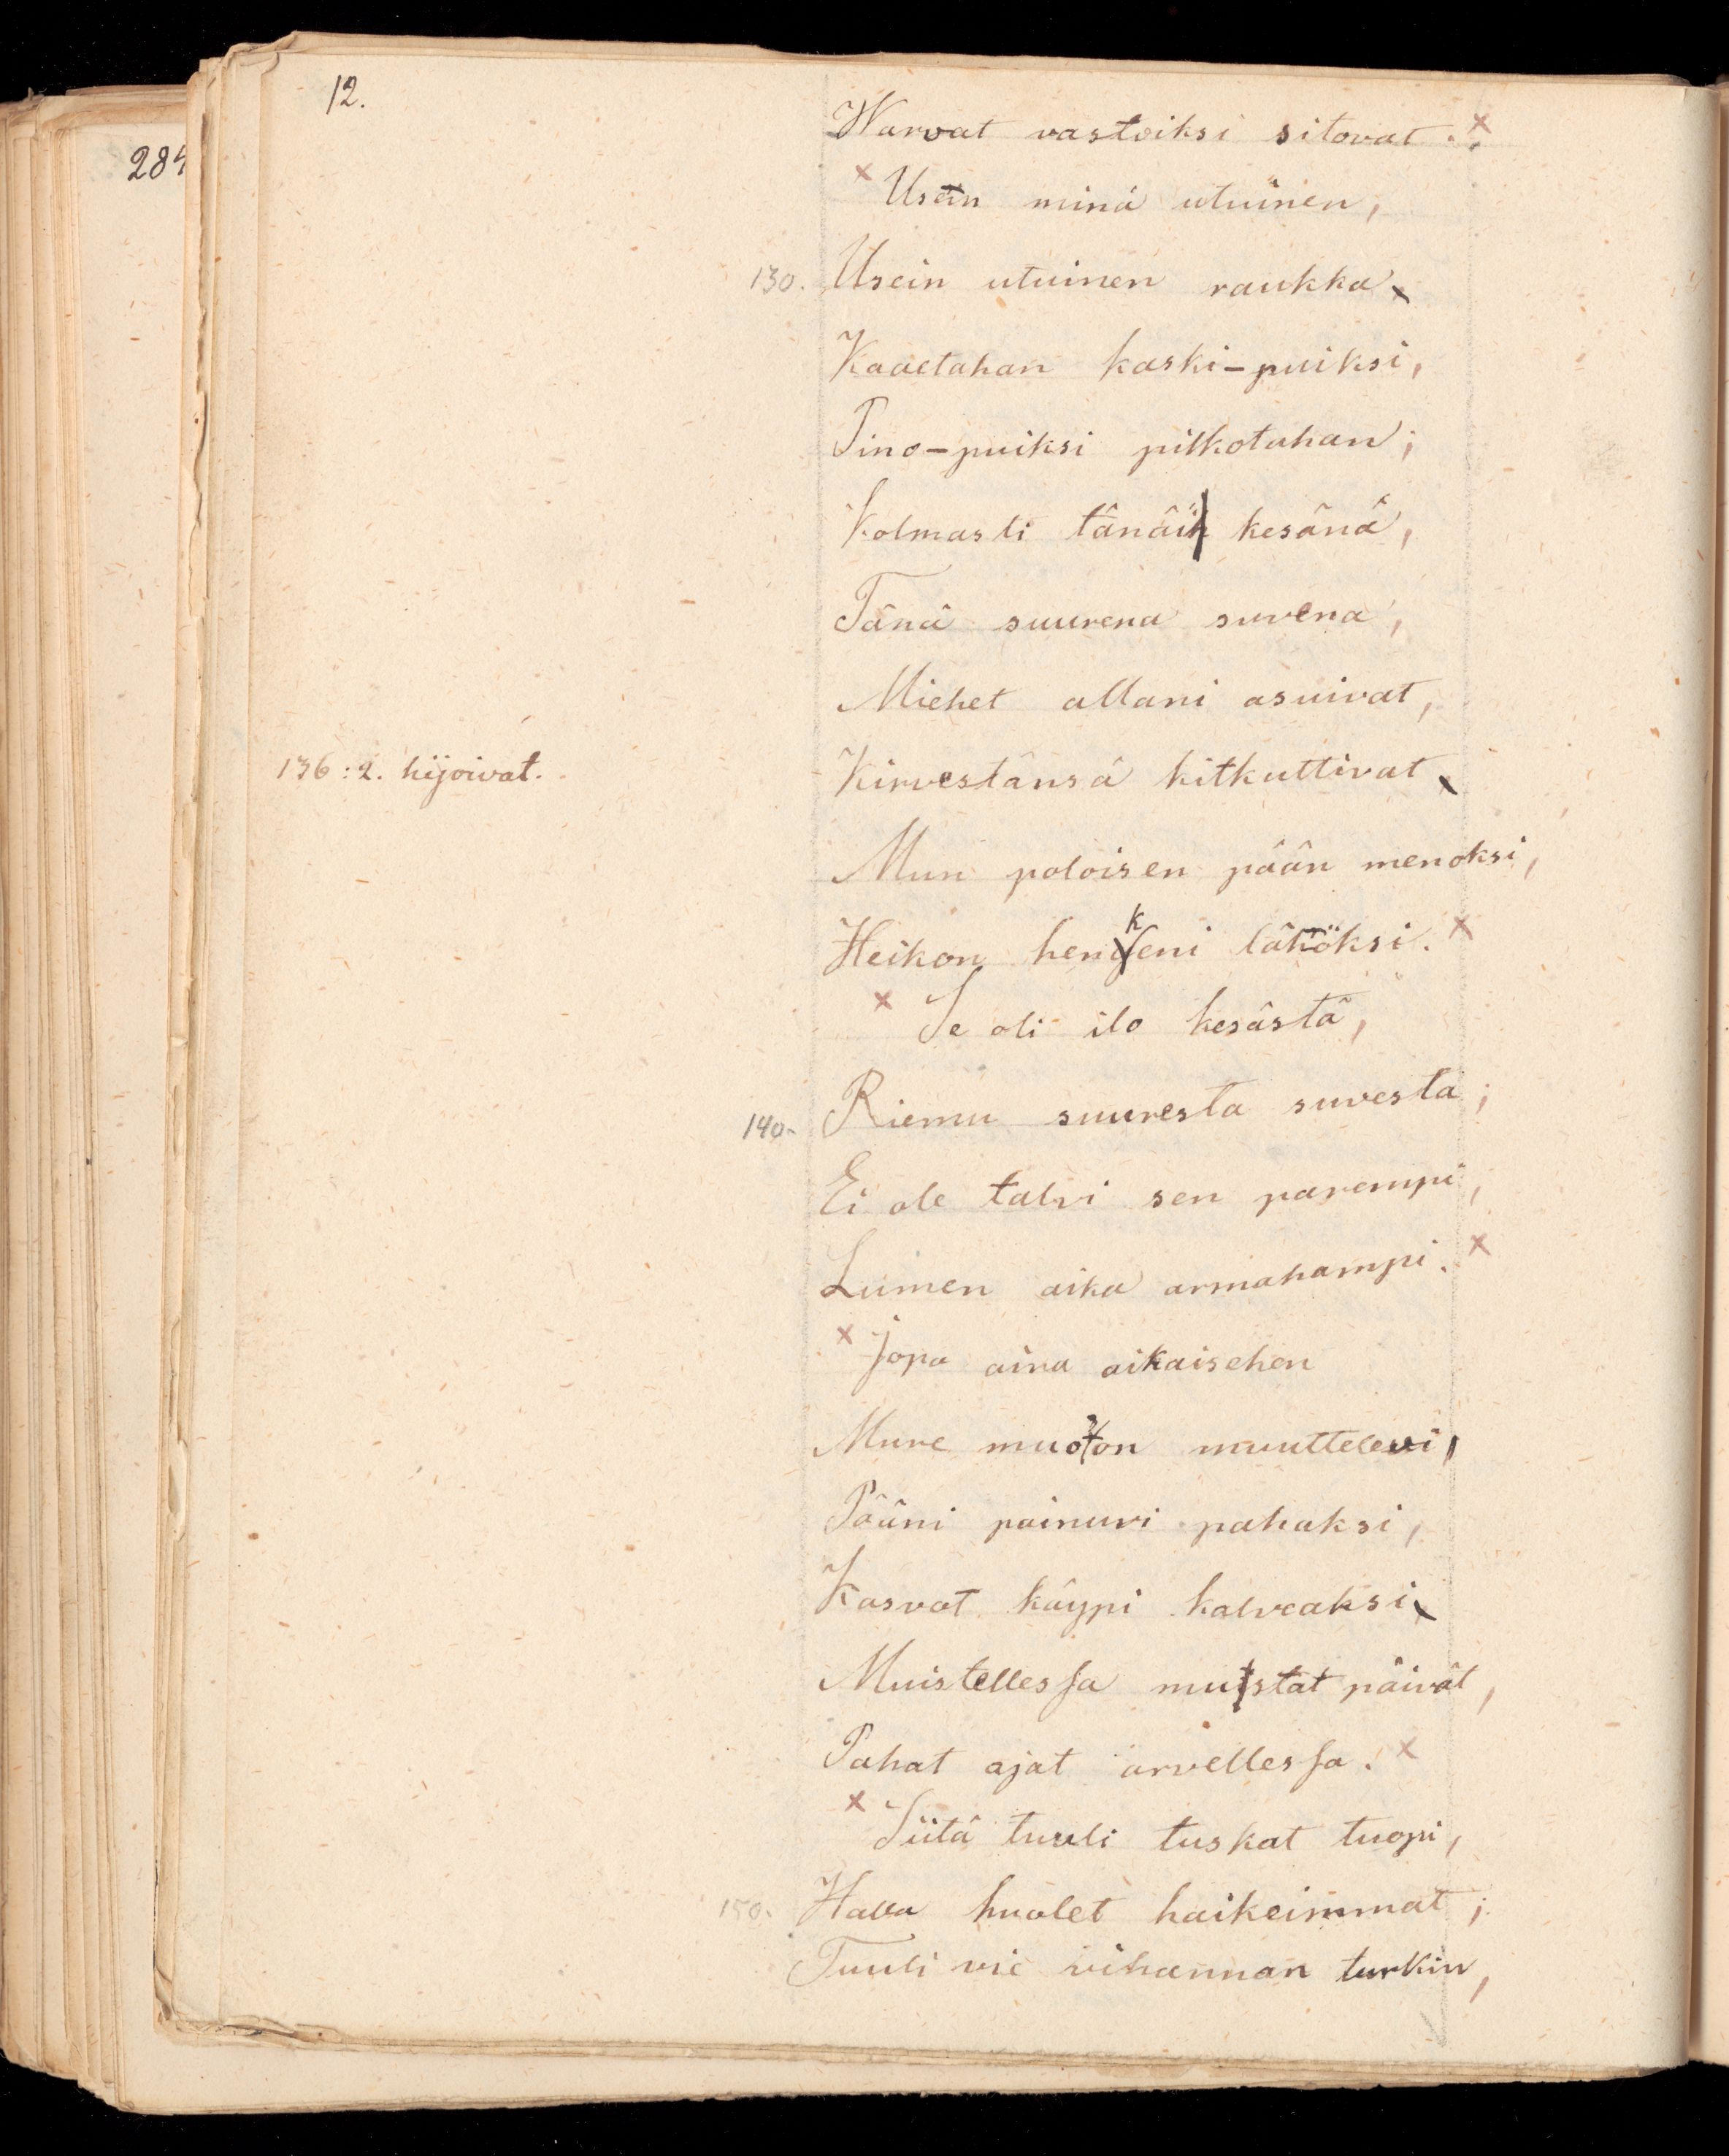 12.
284
Warvat vastoiksi sitovat.
Usein minä utuinen,
130. Usein utuinen raukka
Kaaetahan kaski-puiksi,
Pino-puiksi pilkotahan;
Kolmasti tänäi kesänä,
Tänä suurena suvena,
Miehet allani asuivat,
136:2. hijoivat.
Kirvestänsä kitkuttivat
Mun poloisen pään menoksi,
Heikon henkeni läköksi.
Se oli ilo kesästä,
140. Riemu suuresta suvesta;
Ei ole talvi sen parempi,
Lumen aika armahampi.
Jopa aina aikaisehen
Mure muoon muuttelevi,
Pääni painuvi pahaksi,
Kasvot käypi kalveaksi
Muistellessa mustat päivät,
Pahat ajat arvellessa.
Siitä tuuli tuskat tuopi,
150. Halla huolet haikeimmat;
Tuuli vie vihannan turkin,